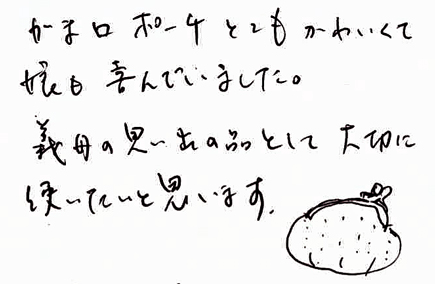 がま口 ポーチ とてもかわいくて
娘も 喜んでいました。
義母の思い出の品として 大切に
使いたいと思います。